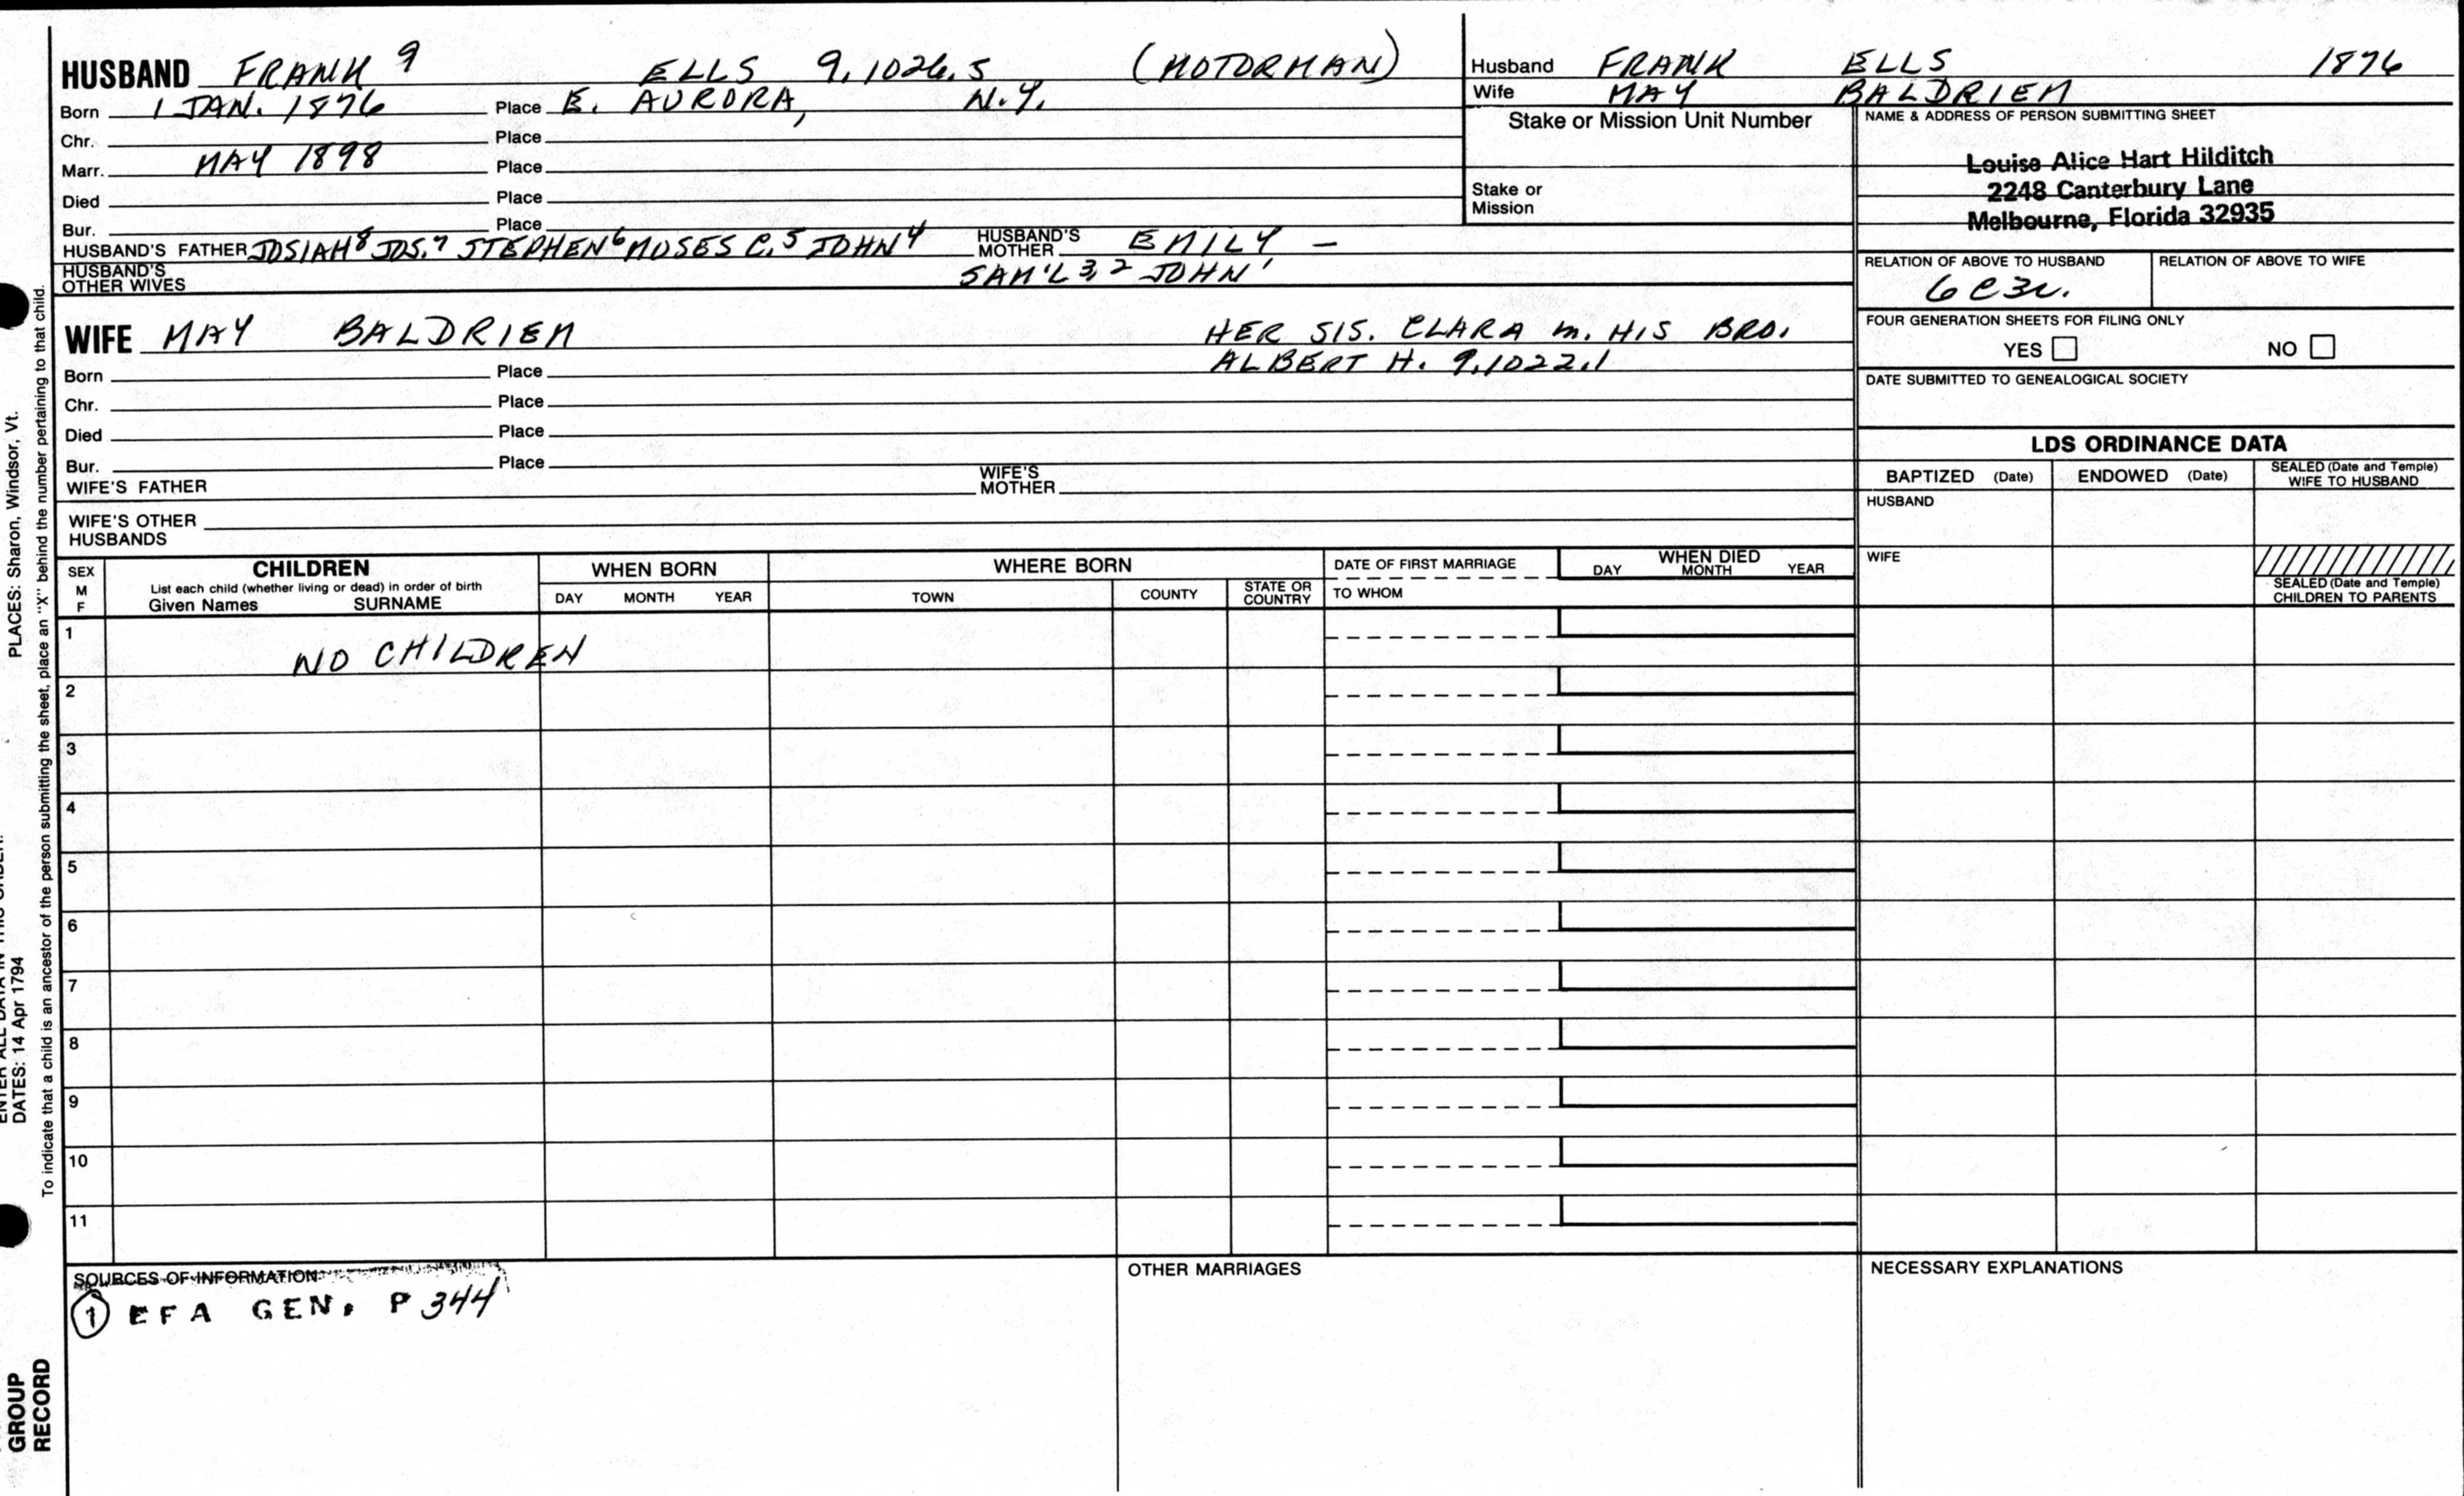 HUSBAND FRANK 9 ELLS 9.1026.5 (MOTORMAN)
Born 1 JAN. 1876 Place E. AURORA, N.Y.
Chr. Place
Marr. MAY 1898 Place
Died Place
Bur. Place
HUSBAND'S FATHER JOSIAH 8 JOS. 7 STEPHEN 6 MOSES C. 5 JOHN 4 HUSBAND'S MOTHER EMILY –
HUSBAND'S OTHER WIVES SAM'L 3, 2 JOHN 1
Husband FRANK ELLS 1876
Wife MAY BALDRIEM
Stake or Mission Unit Number
Stake or
Mission
NAME & ADDRESS OF PERSON SUBMITTING SHEET
Louise Alice Hart Hilditch
2248 Canterbury Lane
Melbourne, Florida 32935
RELATION OF ABOVE TO HUSBAND RELATION OF ABOVE TO WIFE
6C3r.
FOUR GENERATION SHEETS FOR FILING ONLY
YES NO
DATE SUBMITTED TO GENEALOGICAL SOCIETY
WIFE MAY BALDRIEM HER SIS. CLARA m. HIS BRO.
ALBERT H. 9.1022.1
Born Place
Chr. Place
Died Place
Bur. Place
WIFE'S FATHER WIFE'S MOTHER
WIFE'S OTHER
HUSBANDS
LDS ORDINANCE DATA
BAPTIZED (Date) ENDOWED (Date) SEALED (Date and Temple) WIFE TO HUSBAND
HUSBAND
WIFE
SEALED (Date and Temple)
CHILDREN TO PARENTS
SEX
M
F
CHILDREN
List each child (whether living or dead) in order of birth
Given Names SURNAME
WHEN BORN
DAY MONTH YEAR
WHERE BORN
TOWN COUNTY STATE OR COUNTRY
DATE OF FIRST MARRIAGE
TO WHOM
WHEN DIED
DAY MONTH YEAR
1 NO CHILDREN
2
3
4
5
6
7
8
9
10
11
SOURCES OF INFORMATION
1 EFA GEN. P 344
OTHER MARRIAGES
NECESSARY EXPLANATIONS
PLACES: Sharon, Windsor, Vt.
DATES: 14 Apr 1794
To indicate that a child is an ancestor of the person submitting the sheet, place an "X" behind the number pertaining to that child.
GROUP
RECORD